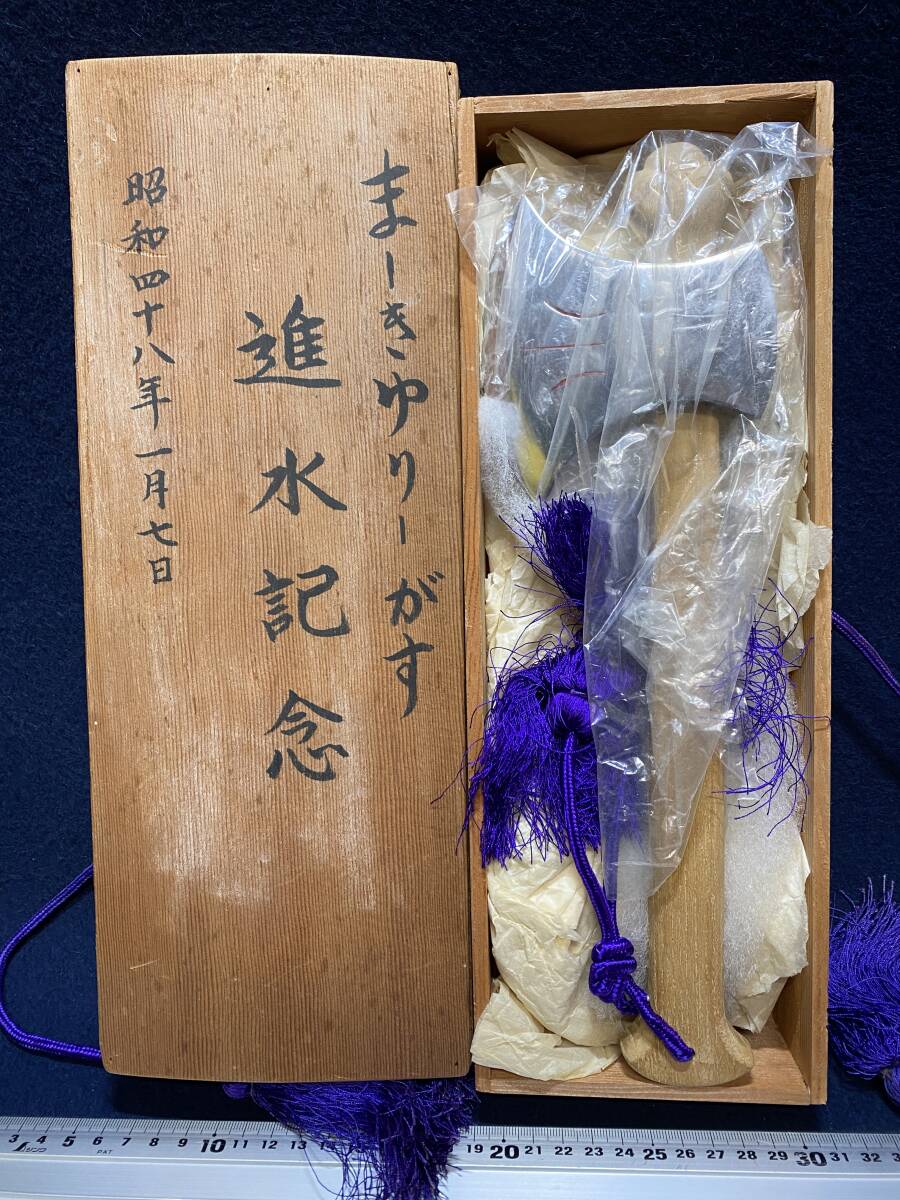 まーきゆりーがす
進水記念
昭和四十八年一月七日
3 4 5 6 7 8 9 10 11 12 13 19 20 21 22 23 24 25 26 27 28 29 30 31 32
シンワ
PAT